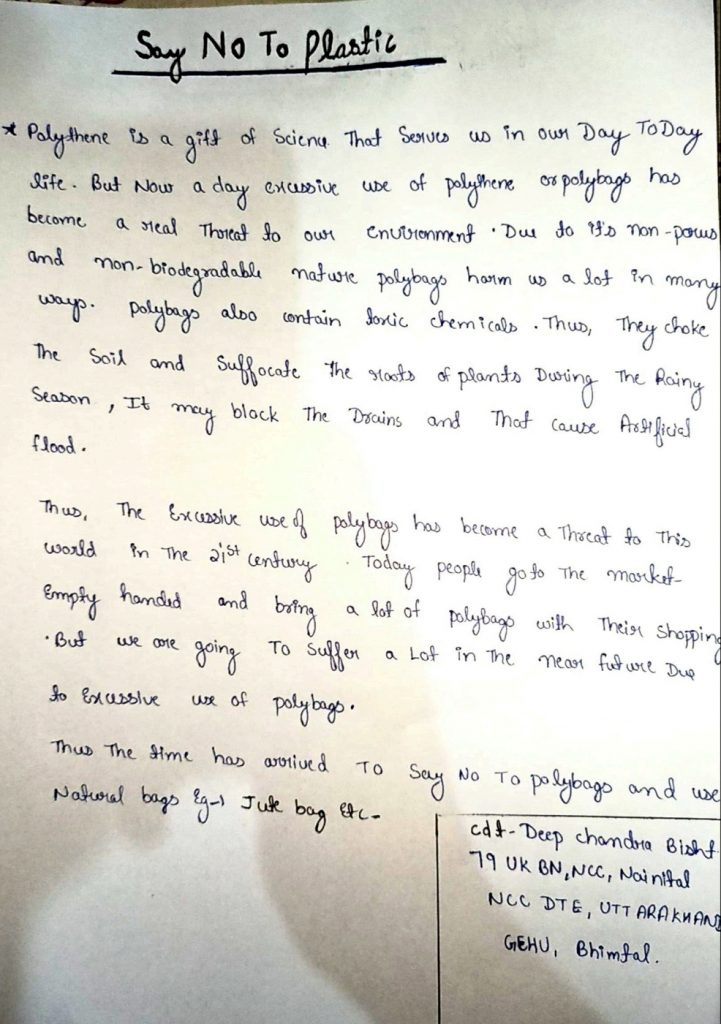 Say No To Plastic
* Polythene is a gift of Science That Serves us in our Day To Day
life. But Now a day excussive use of polythene or polybags has
become a real Threat to our environment. Due to it's non-porus
and non-biodegradable nature polybags harm us a lot in many
ways. polybags also contain toxic chemicals. Thus, They choke
The Soil and Suffocate The roots of plants During The Rainy
Season, It may block The Drains and That cause Artificial
flood.
Thus, The Excussive use of polybags has become a Threat to This
world in The 21st century. Today people go to The market-
Empty handed and bring a lot of polybags with Their shopping
. But we are going To Suffer a Lot in The near future Due
to Excussive use of polybags.
Thus The time has arrived To Say No To polybags and use
Natural bags Eg→ Jute bag Etc-
cdt-Deep chandra Bisht
79 UK BN, NCC, Nainital
NCC DTE, UTTARAKHAND
GEHU, Bhimtal.